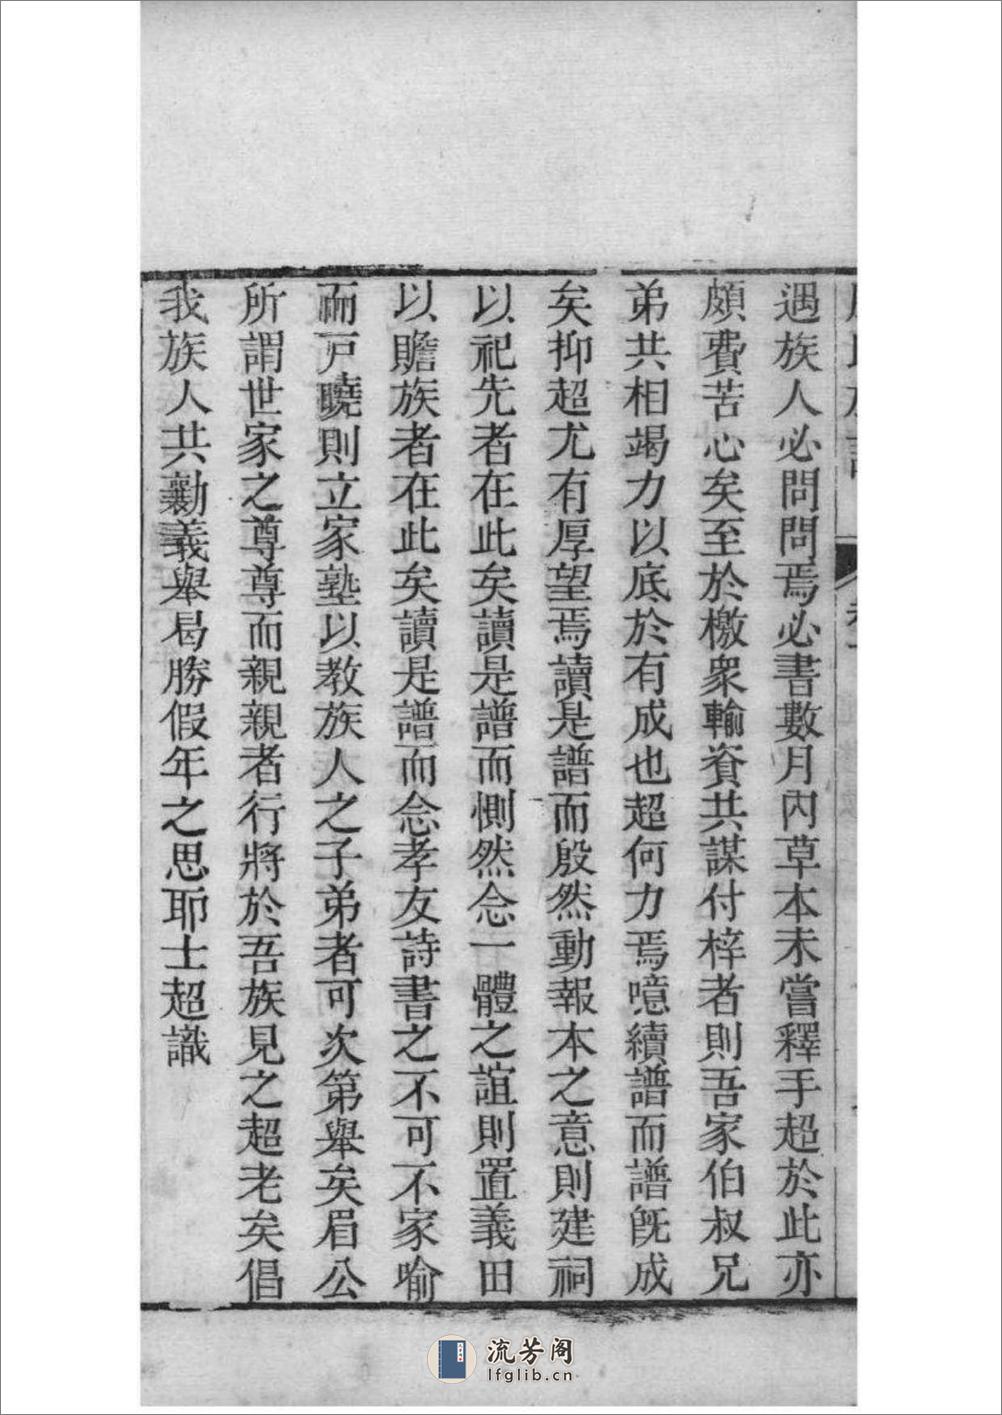 遇族人必問問焉必書數月內草本未嘗釋手超於此亦
頗費苦心矣至於檄衆輸資共謀付梓者則吾家伯叔兄
弟共相竭力以底於有成也超何力焉噫續譜而譜旣成
矣抑超尤有厚望焉讀是譜而殷然動報本之意則建祠
以祀先者在此矣讀是譜而惻然念一體之誼則置義田
以贍族者在此矣讀是譜而念孝友詩書之不可不家喻
而戸曉則立家塾以教族人之子弟者可次第舉矣眉公
所謂世家之尊尊而親親者行將於吾族見之超老矣倡
我族人共勷義舉曷勝假年之思耶士超識
流芳阁
lfglib.cn